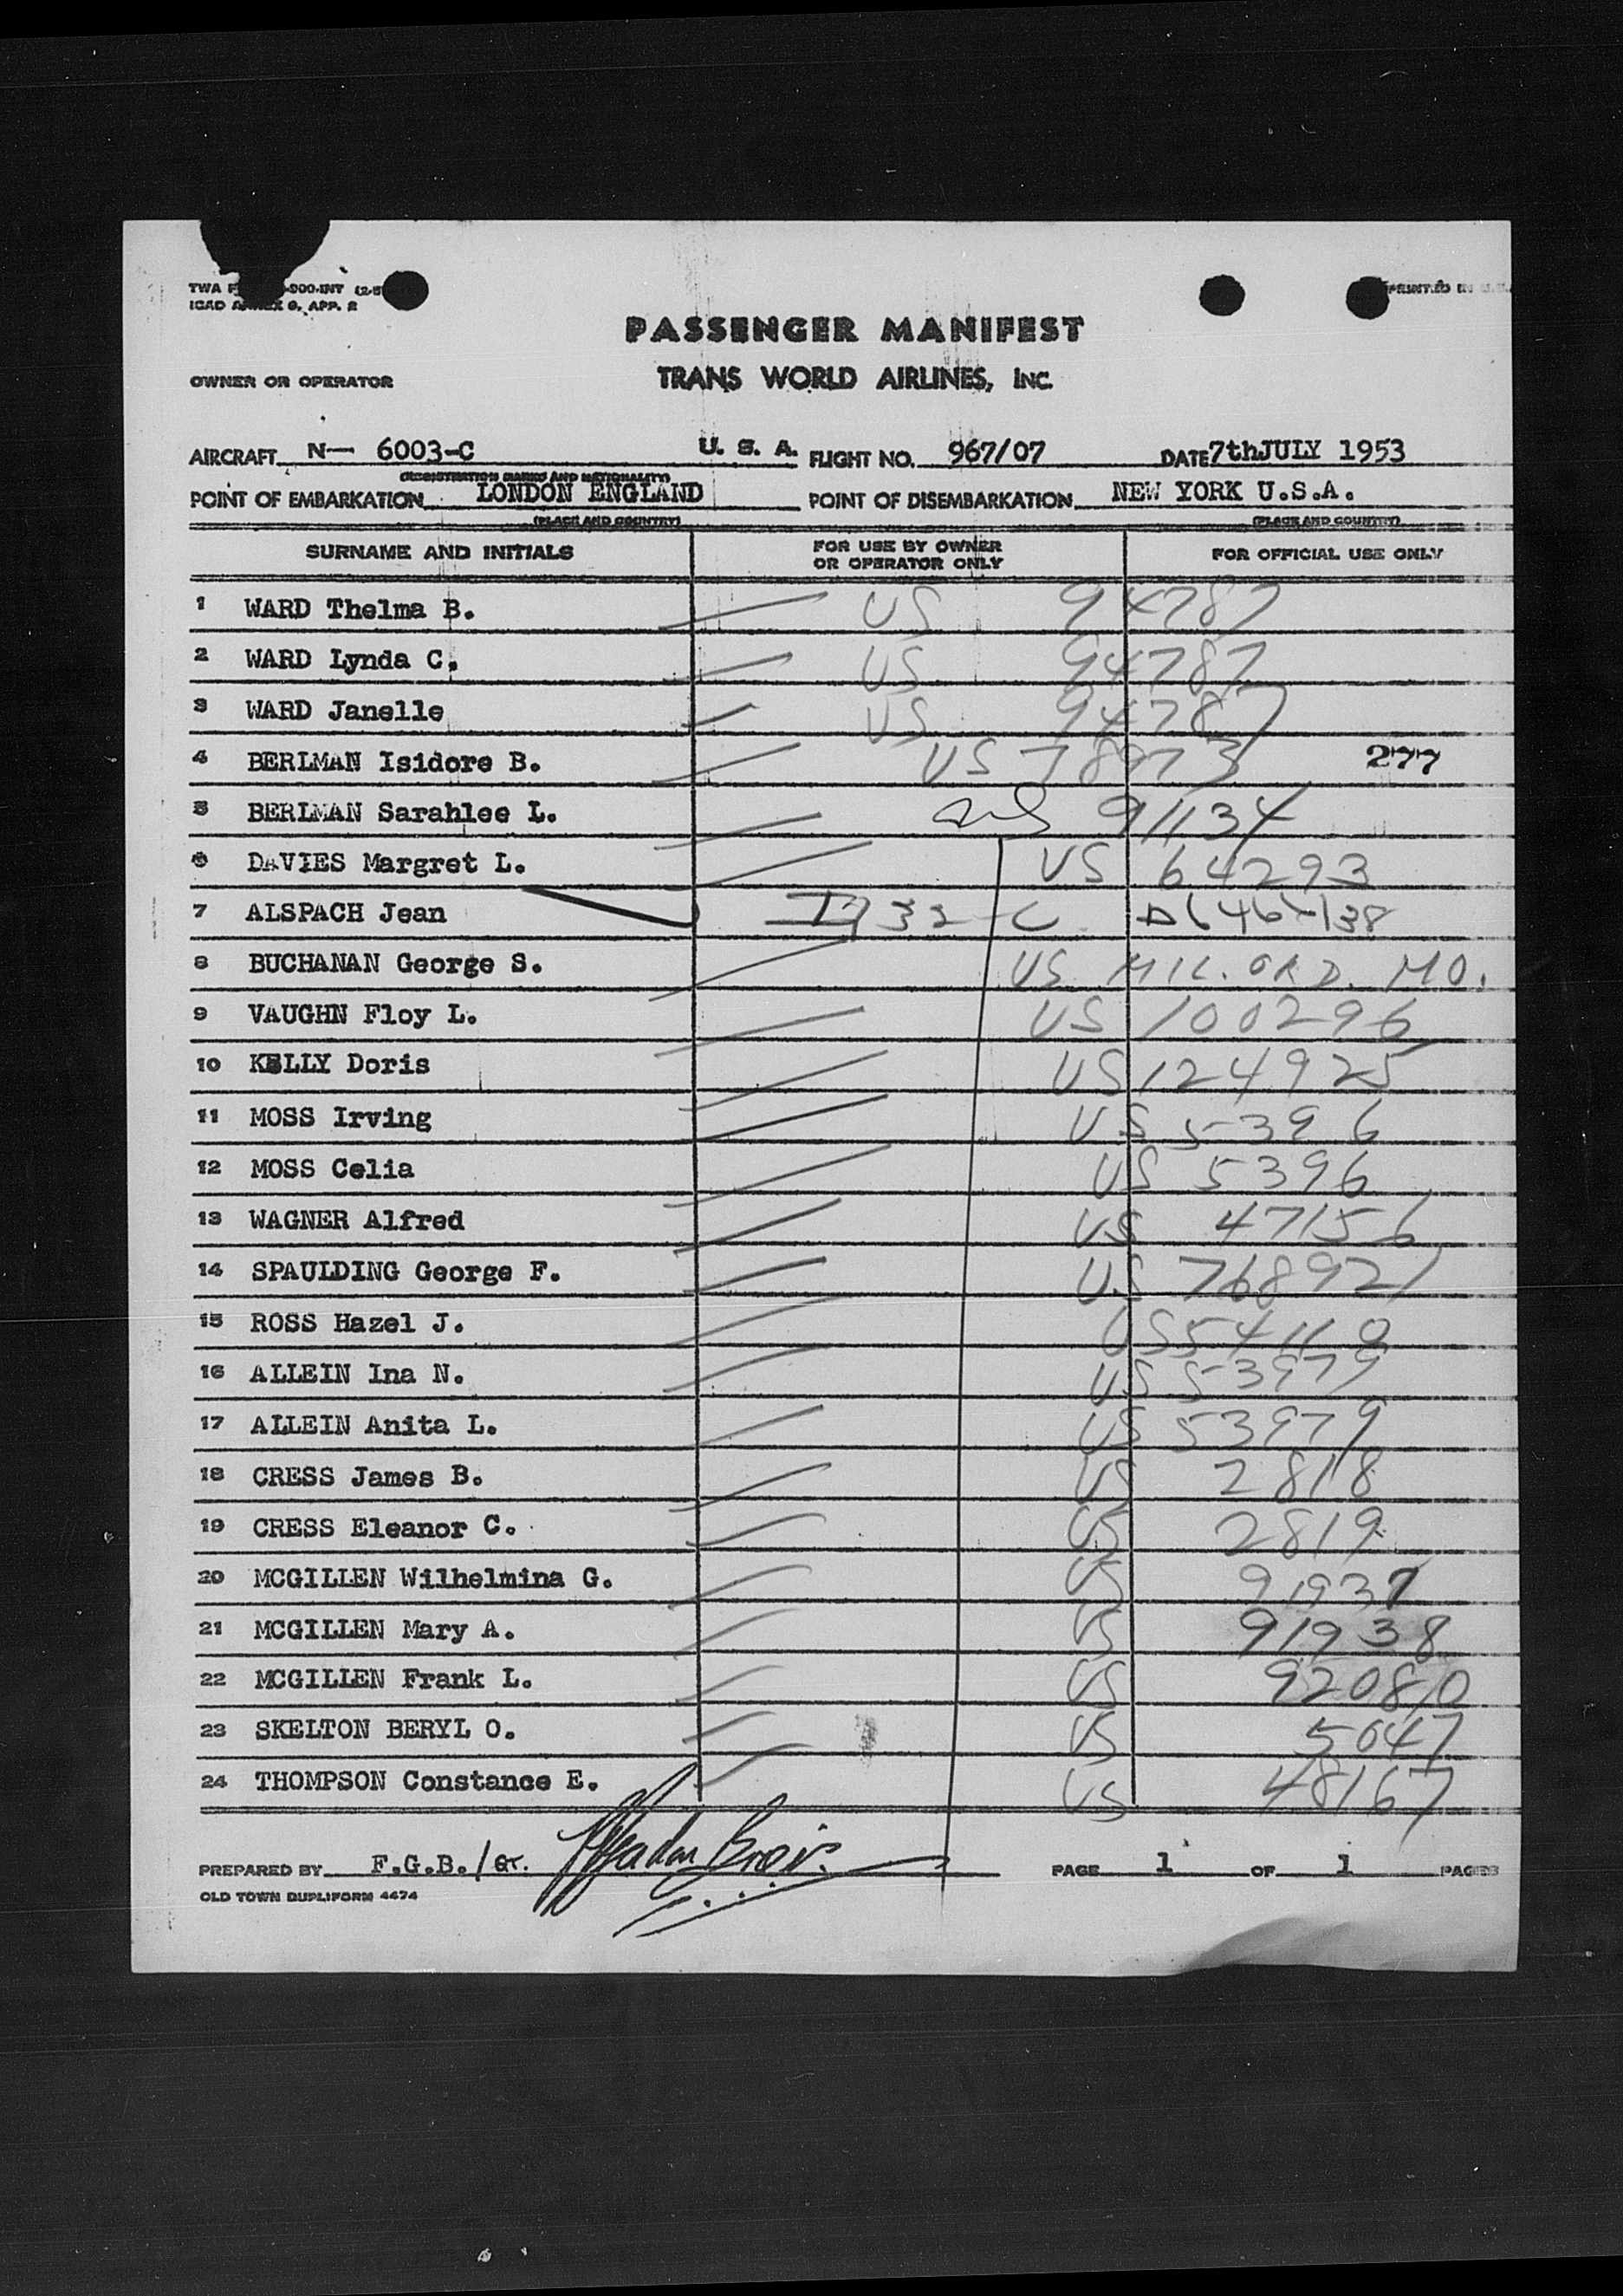 PASSENGER MANIFEST
OWNER OR OPERATOR TRANS WORLD AIRLINES, INC.
AIRCRAFT N— 6003-C U. S. A. FLIGHT NO. 967/07 DATE 7thJULY 1953
(REGISTRATION MARKS AND NATIONALITY)
POINT OF EMBARKATION LONDON ENGLAND POINT OF DISEMBARKATION NEW YORK U.S.A.
(PLACE AND COUNTRY) (PLACE AND COUNTRY)
SURNAME AND INITIALS FOR USE BY OWNER OR OPERATOR ONLY FOR OFFICIAL USE ONLY
1 WARD Thelma B. US 94787
2 WARD Lynda C. US 94787
3 WARD Janelle US 94787
4 BERLMAN Isidore B. US 78973 277
5 BERLMAN Sarahlee L. 91134
6 DAVIES Margret L. US 64293
7 ALSPACH Jean
8 BUCHANAN George S. US MIL. ORD. MO.
9 VAUGHN Floy L. US 100296
10 KELLY Doris US 124925
11 MOSS Irving US 5396
12 MOSS Celia US 5396
13 WAGNER Alfred US 47156
14 SPAULDING George F. US 768921
15 ROSS Hazel J. US
16 ALLEIN Ina N. US 53979
17 ALLEIN Anita L. US 53979
18 CRESS James B. US 2818
19 CRESS Eleanor C. US 2819
20 MCGILLEN Wilhelmina G. US 91937
21 MCGILLEN Mary A. US 91938
22 MCGILLEN Frank L. US
23 SKELTON BERYL O. US 5047
24 THOMPSON Constance E. US 48167
PREPARED BY F.G.B./ PAGE 1 OF 1 PAGES
OLD TOWN DUPLIFORM 4474